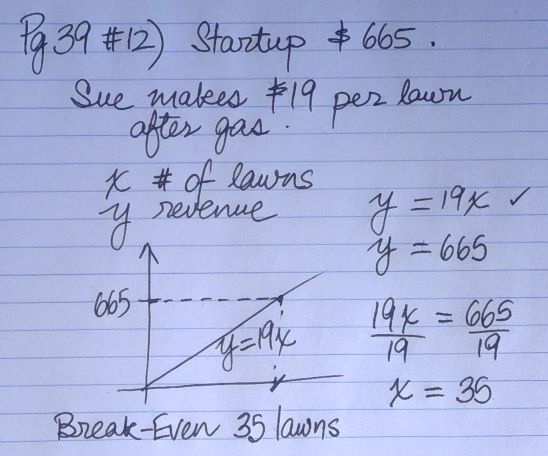 Pg 39 #12) Startup $ 665.
Sue makes $19 per lawn
after gas.
x # of lawns
y revenue
y = 19x ✓
y = 665
665
y=19x
19x = 665
19 19
x = 35
Break-Even 35 lawns